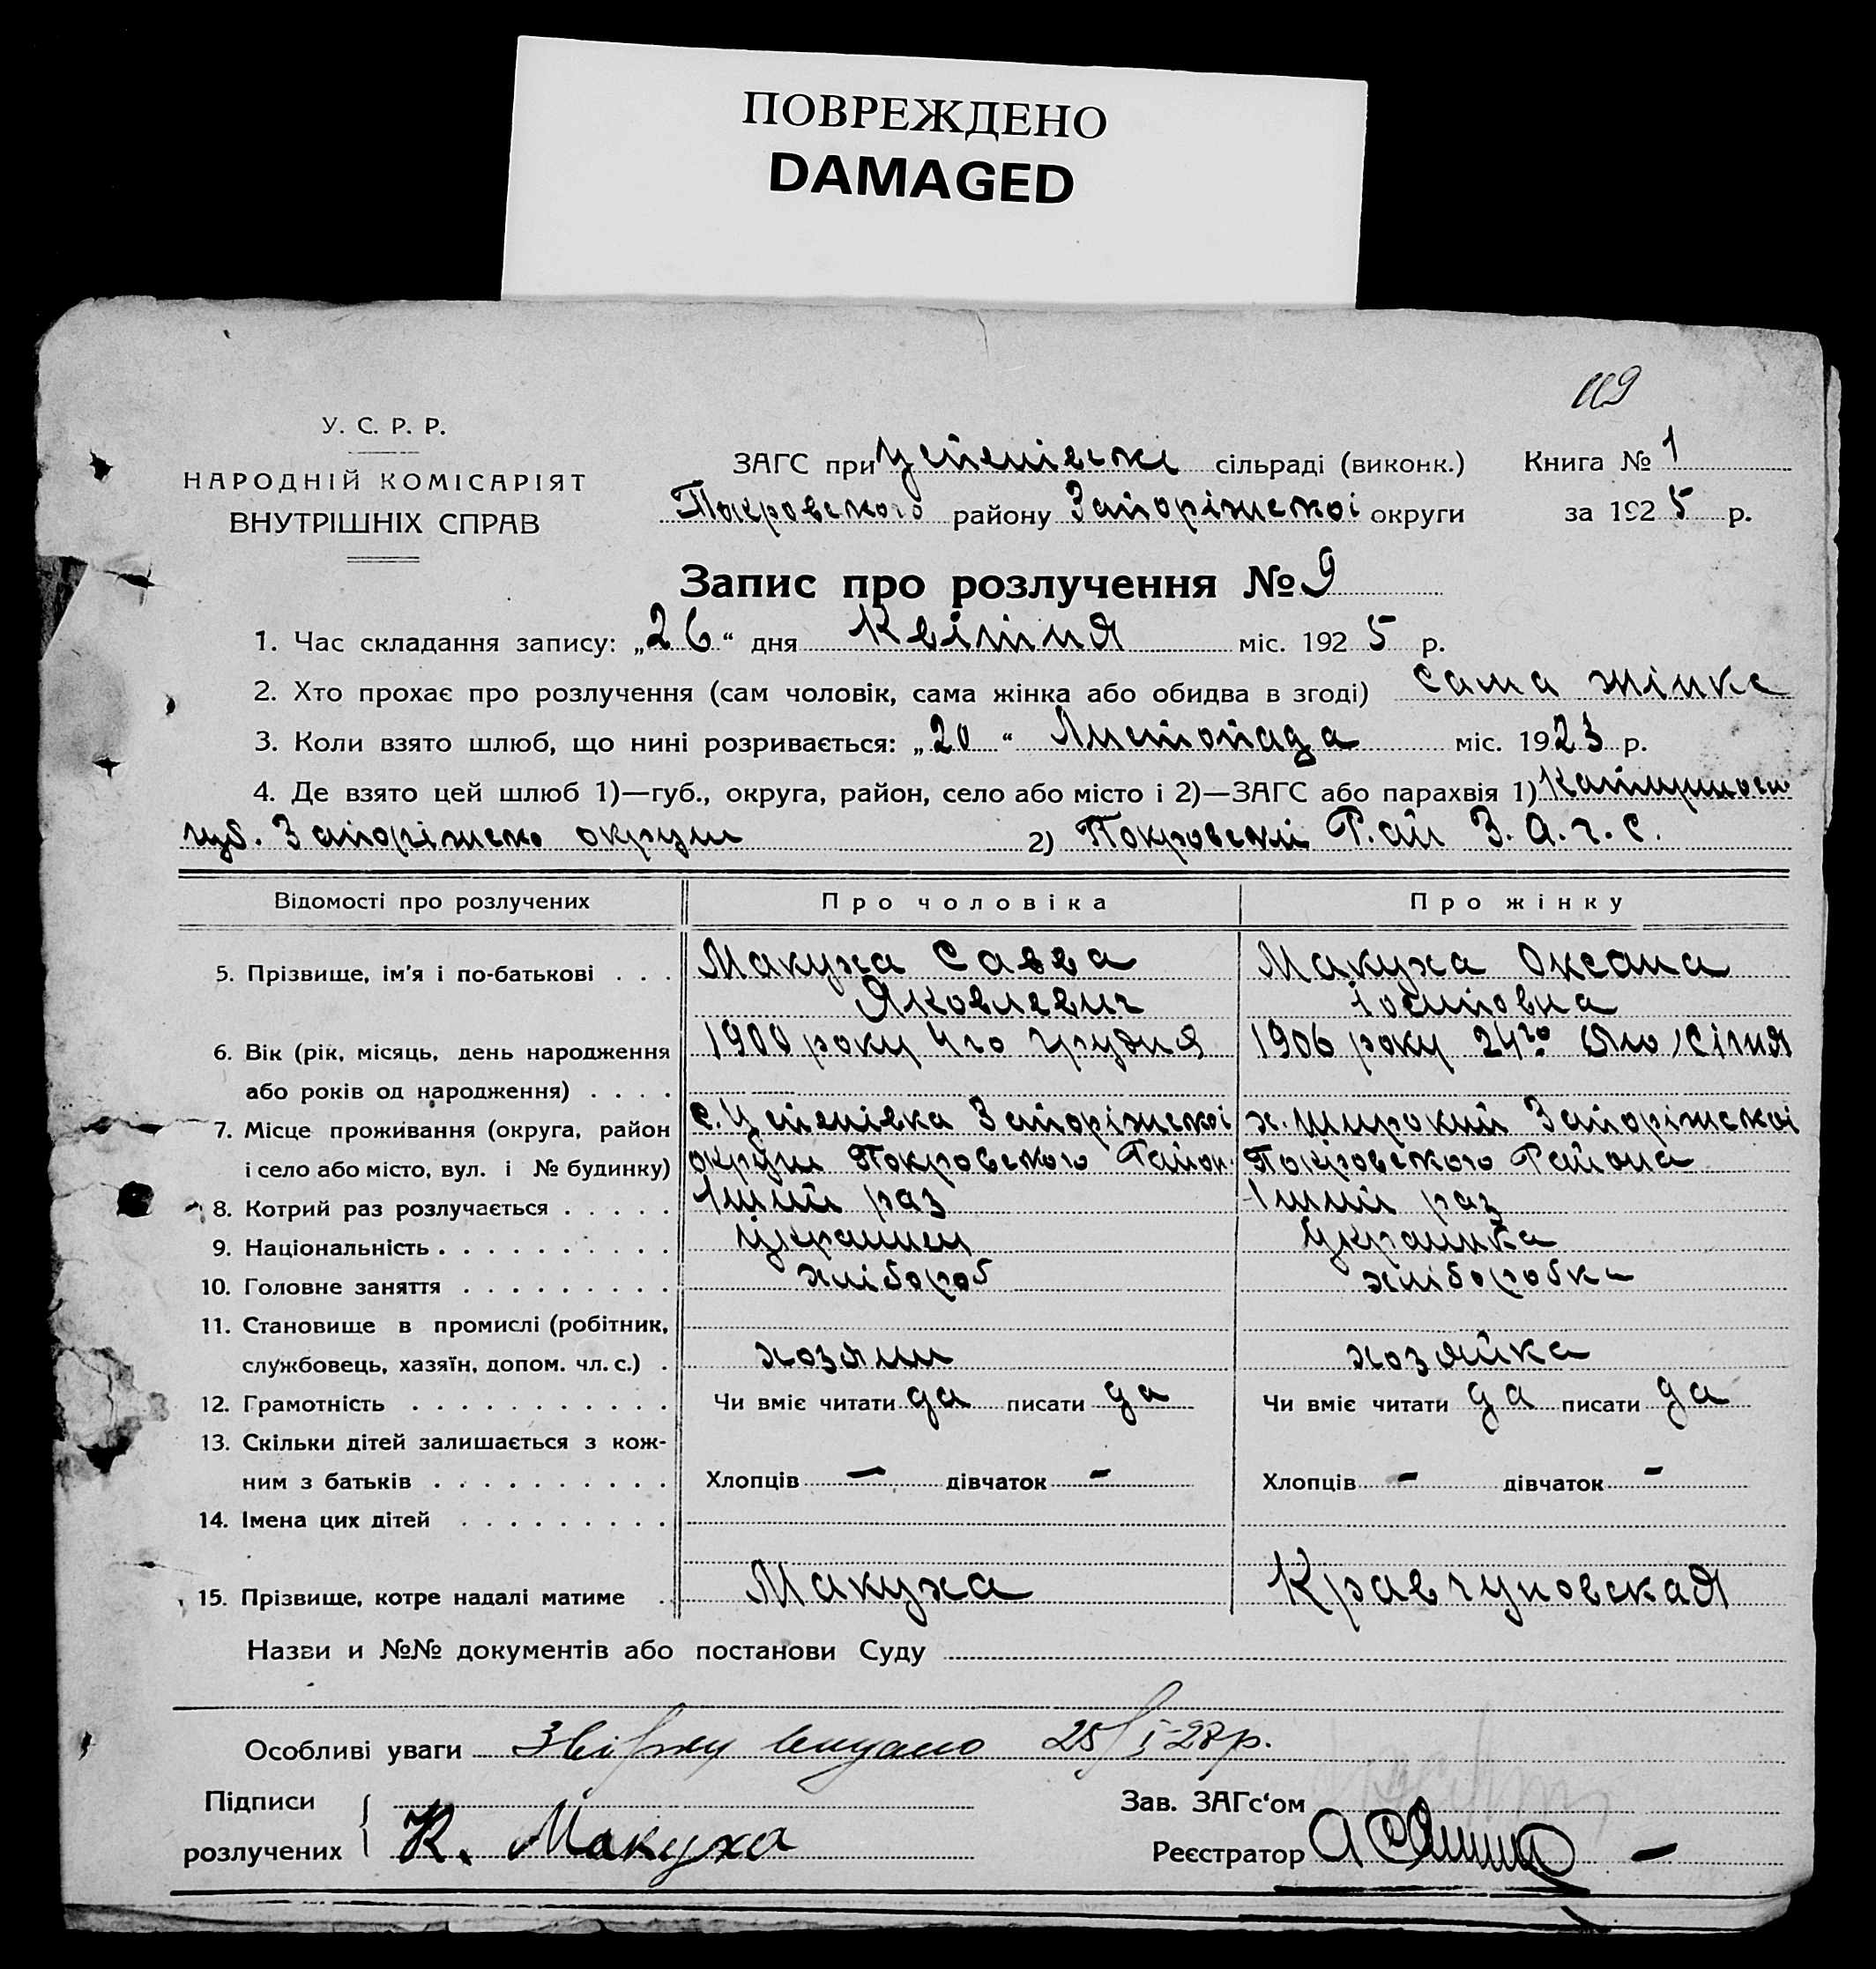 ПОВРЕЖДЕНО
DAMAGED
119
У. С. Р. Р.
НАРОДНІЙ КОМІСАРІЯТ
ВНУТРІШНІХ СПРАВ
ЗАГС при Успенівські сільраді (виконк.) Книга № 1
Покровского району Запоріжскоі округи за 1925 р.
Запис про розлучення № 9
1. Час складання запису: „26“ дня Квітня міс. 1925 р.
2. Хто прохає про розлучення (сам чоловік, сама жінка або обидва в згоді) сама жінка
3. Коли взято шлюб, що нині розривається: „20“ Листопада міс. 1923 р.
4. Де взято цей шлюб 1)—губ., округа, район, село або місто і 2)—ЗАГС або парахвія 1)
губ. Запоріжско округи 2) Покровский Рай З.А.Г.С.
Відомості про розлучених Про чоловіка Про жінку
5. Прізвище, ім'я і по-батькові . . . Макуха Савва Макуха Оксана
Яковлевич Іосиповна
6. Вік (рік, місяць, день народження 1900 року 4го Грудня 1906 року 24го
або років од народження) . . . .
7. Місце проживання (округа, район с. Успенівка Запоріжскоі х. Широкий Запоріжскоі
і село або місто, вул. і № будинку) округи Покровского Район. Покровского Района
8. Котрий раз розлучається . . . . . 1ший раз 1ший раз
9. Національність . . . . . . . . . . Украинец Украинка
10. Головне заняття . . . . . . . . . хлібороб хліборобка
11. Становище в промислі (робітник,
службовець, хазяїн, допом. чл. с.) . хозяин хозяйка
12. Грамотність . . . . . . . . . . . Чи вміє читати да писати да Чи вміє читати да писати да
13. Скільки дітей залишається з кож-
ним з батьків . . . . . . . . . . Хлопців — дівчаток - Хлопців - дівчаток -
14. Імена цих дітей . . . . . . . . .
15. Прізвище, котре надалі матиме . Макуха Кравчуновская
Назви и №№ документів або постанови Суду
Особливі уваги видано 25/I-28р.
Підписи Зав. ЗАГс‘ом
розлучених К. Макуха Реєстратор